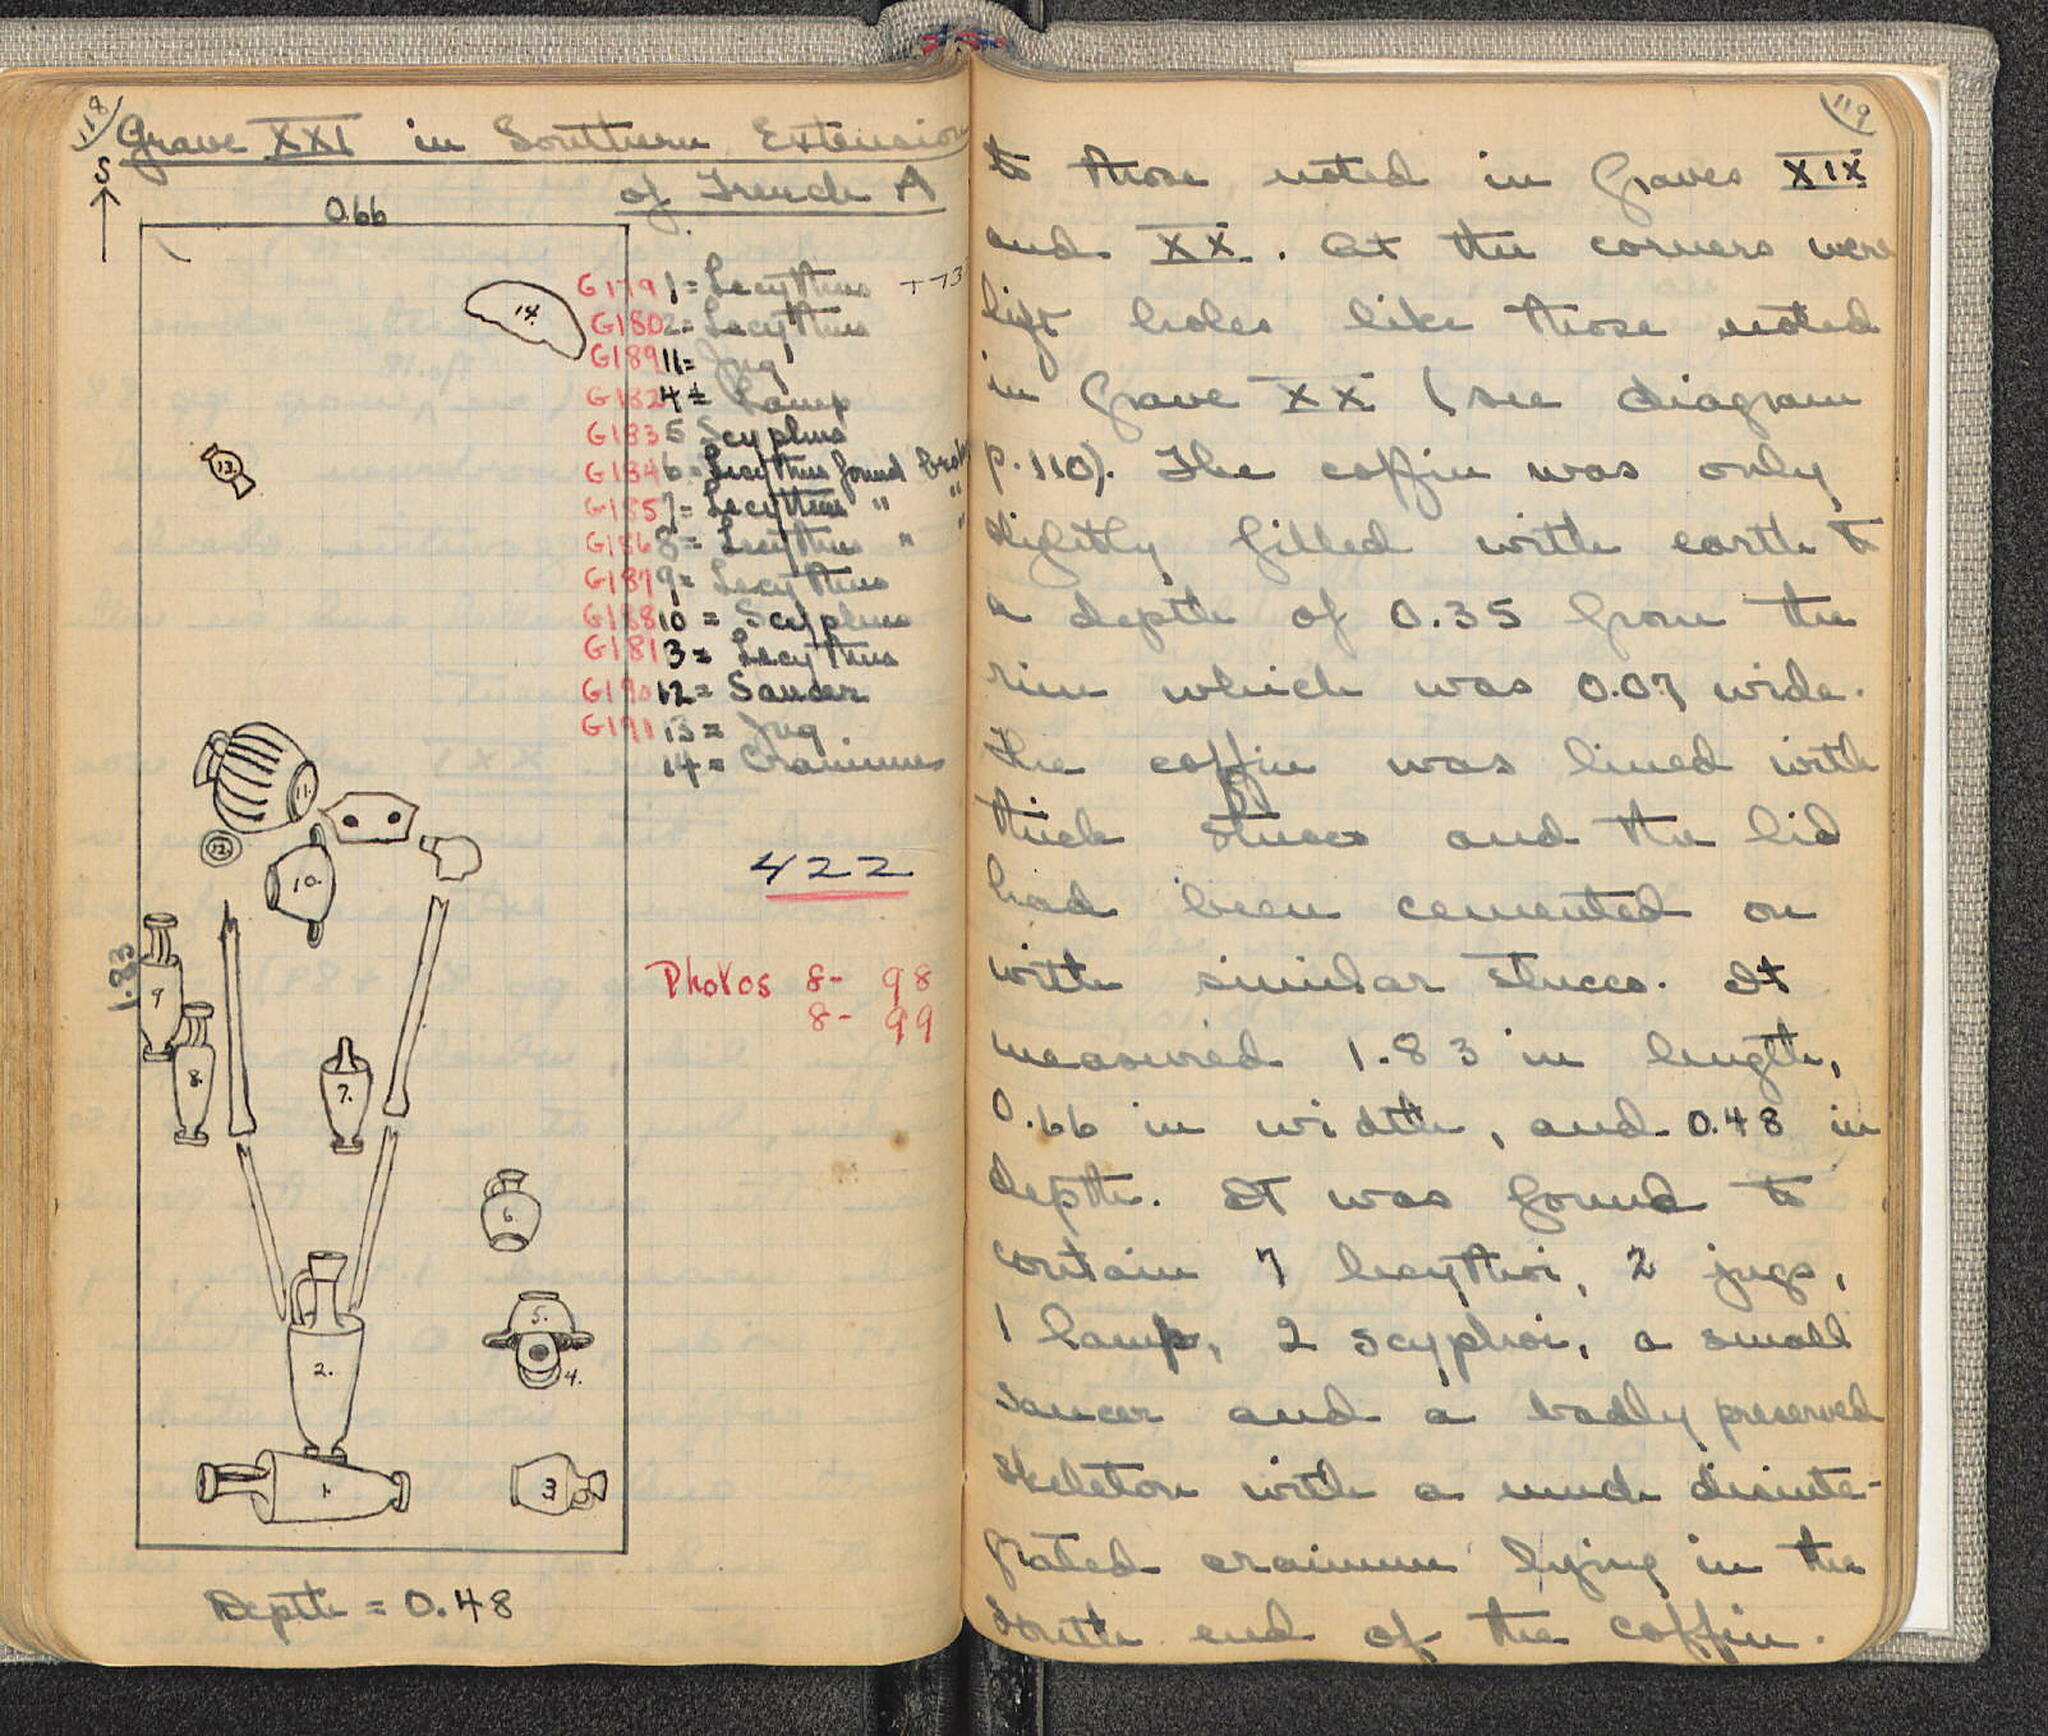 118
Grave XXI in Southern Extension
of Trench A
S
0.66
G179 1 = Lecythus T-73
G180 2 = Lecythus
G189 11 = Jug
G182 4 = Lamp
G183 5 Scyphus
G184 6 = Lecythus found
G185 7 = Lecythus " "
G186 8 = Lecythus " "
G187 9 = Lecythus
G188 10 = Scyphus
G181 3 = Lecythus
G190 12 = Saucer
G191 13 = Jug
14 = Cranium
14.
13.
11.
12.
10.
422
1.83
9
8.
7.
Photos 8- 98
8- 99
6
5.
4.
2.
1.
3
Depth = 0.48
119
to those noted in Graves XIX
and XX. At the corners were
lift holes like those noted
in Grave XX (see diagram
p. 110). The coffin was only
slightly filled with earth to
a depth of 0.35 from the
rim which was 0.07 wide.
The coffin was lined with
thick stucco and the lid
had been cemented on
with similar stucco. It
measured 1.83 in length,
0.66 in width, and 0.48 in
depth. It was found to
contain 7 lecythoi, 2 jugs,
1 lamp, 2 scyphoi, a small
saucer and a badly preserved
skeleton with a much disinte-
grated cranium lying in the
south end of the coffin.